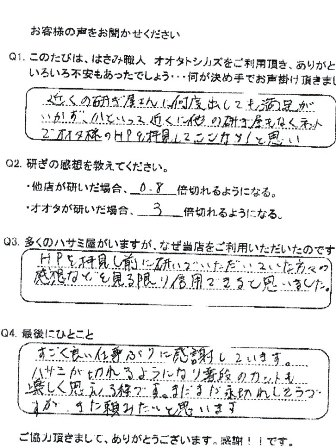 お客様の声をお聞かせください
Q1. このたびは、はさみ職人 オオタトシカズをご利用頂き、ありがと
いろいろ不安もあったでしょう・・・何が決め手でお声掛け頂きまし
近くの研ぎ屋さんに何度出しても満足が
いかず、かといって近くに他の研ぎ屋もなくネット
でオオタ様のHPを拝見してここなら!と思い
Q2. 研ぎの感想を教えてください。
・他店が研いだ場合、 0.8 倍切れるようになる。
・オオタが研いだ場合、 3 倍切れるようになる。
Q3. 多くのハサミ屋がいますが、なぜ当店をご利用いただいたのです
HPを拝見し前に研いでいただいていた方々の
感想などを見る限り信用できると思いました。
Q4. 最後にひとこと
すごく良い仕事ぶりに感謝しています。
ハサミが切れるようになり普段のカットも
楽しく思える様です。まだまだ永切れしそうで
すが また頼みたいと思います
ご協力頂きまして、ありがとうございます。感謝!!です。